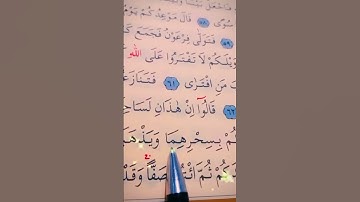 سُوًى ٥٨ قَالَ مَوْعِدُكُمْ يَوْمُ
٥٩ فَتَوَلَّىٰ فِرْعَوْنُ فَجَمَعَ كَ
وَيْلَكُمْ لَا تَفْتَرُوا عَلَى اللّٰهِ
مَنِ افْتَرَىٰ ٦١ فَتَنَازَ
٦٢ قَالُوٓا إِنْ هَٰذَانِ لَسَاحِ
كُمْ بِسِحْرِهِمَا وَيَذْهَبَ
كُمْ ثُمَّ ائْتُوا صَفًّا وَقَدْ